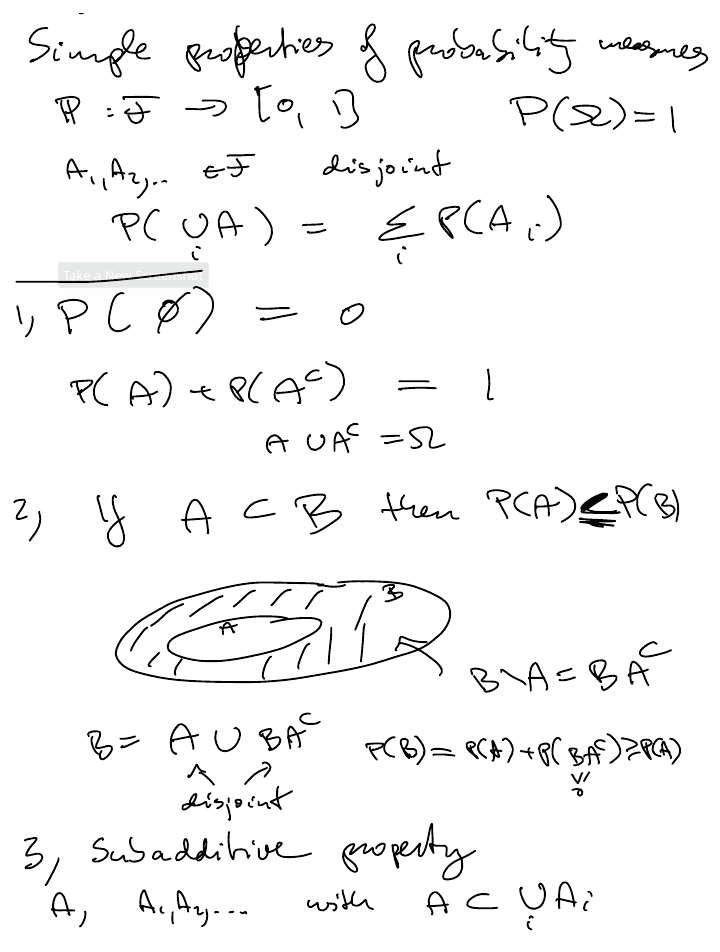 Simple properties of probability measures
P : F → [0, 1] P(Ω) = 1
A₁, A₂, .. ∈ F disjoint
P( ∪ᵢ A ) = Σᵢ P(A ᵢ)
Take a New Screenshot
1, P( ∅ ) = 0
P(A) + P(Aᶜ) = 1
A ∪ Aᶜ = Ω
2, If A ⊂ B then P(A) ≤ P(B)
B
A
B\A = BAᶜ
B = A ∪ BAᶜ P(B) = P(A) + P(BAᶜ) ≥ P(A)
disjoint ≥ 0
3, Subadditive property
A, A₁, A₂, ... with A ⊂ ∪ᵢ Aᵢ